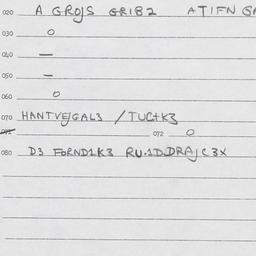 020 A GROJS GRIBZ ATIFN
030 O
040 —
050 —
060 O
070 HANTVEJGAL3 / TUCTK3
072 072 O
080 D3 FORND1K3 RU.1D.DRAJC3X